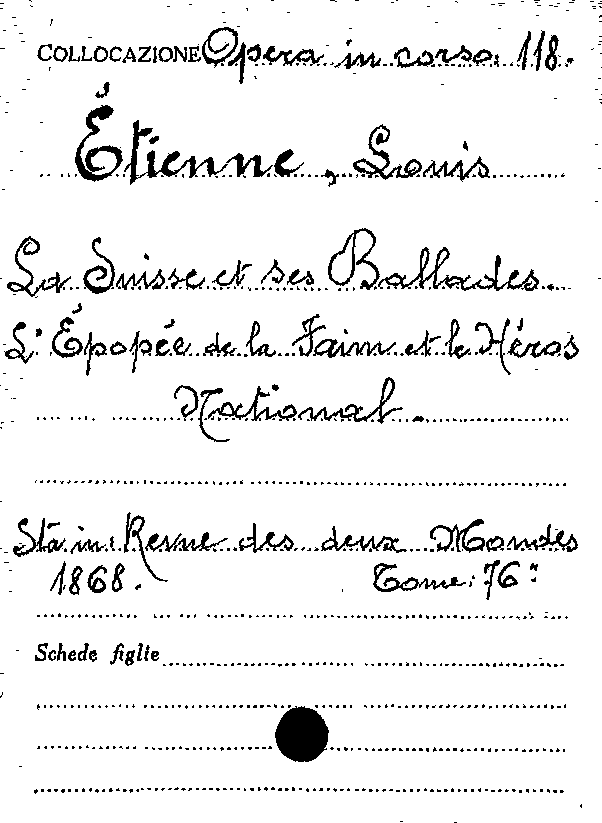 COLLOCAZIONE Opera in corso. 118.
Étienne, Louis
La Suisse et ses Ballades.
L'Épopée de la Faim et le Héros
National.
Sta in: Revue des deux Mondes
1868. Tome: 76º
Schede figlie